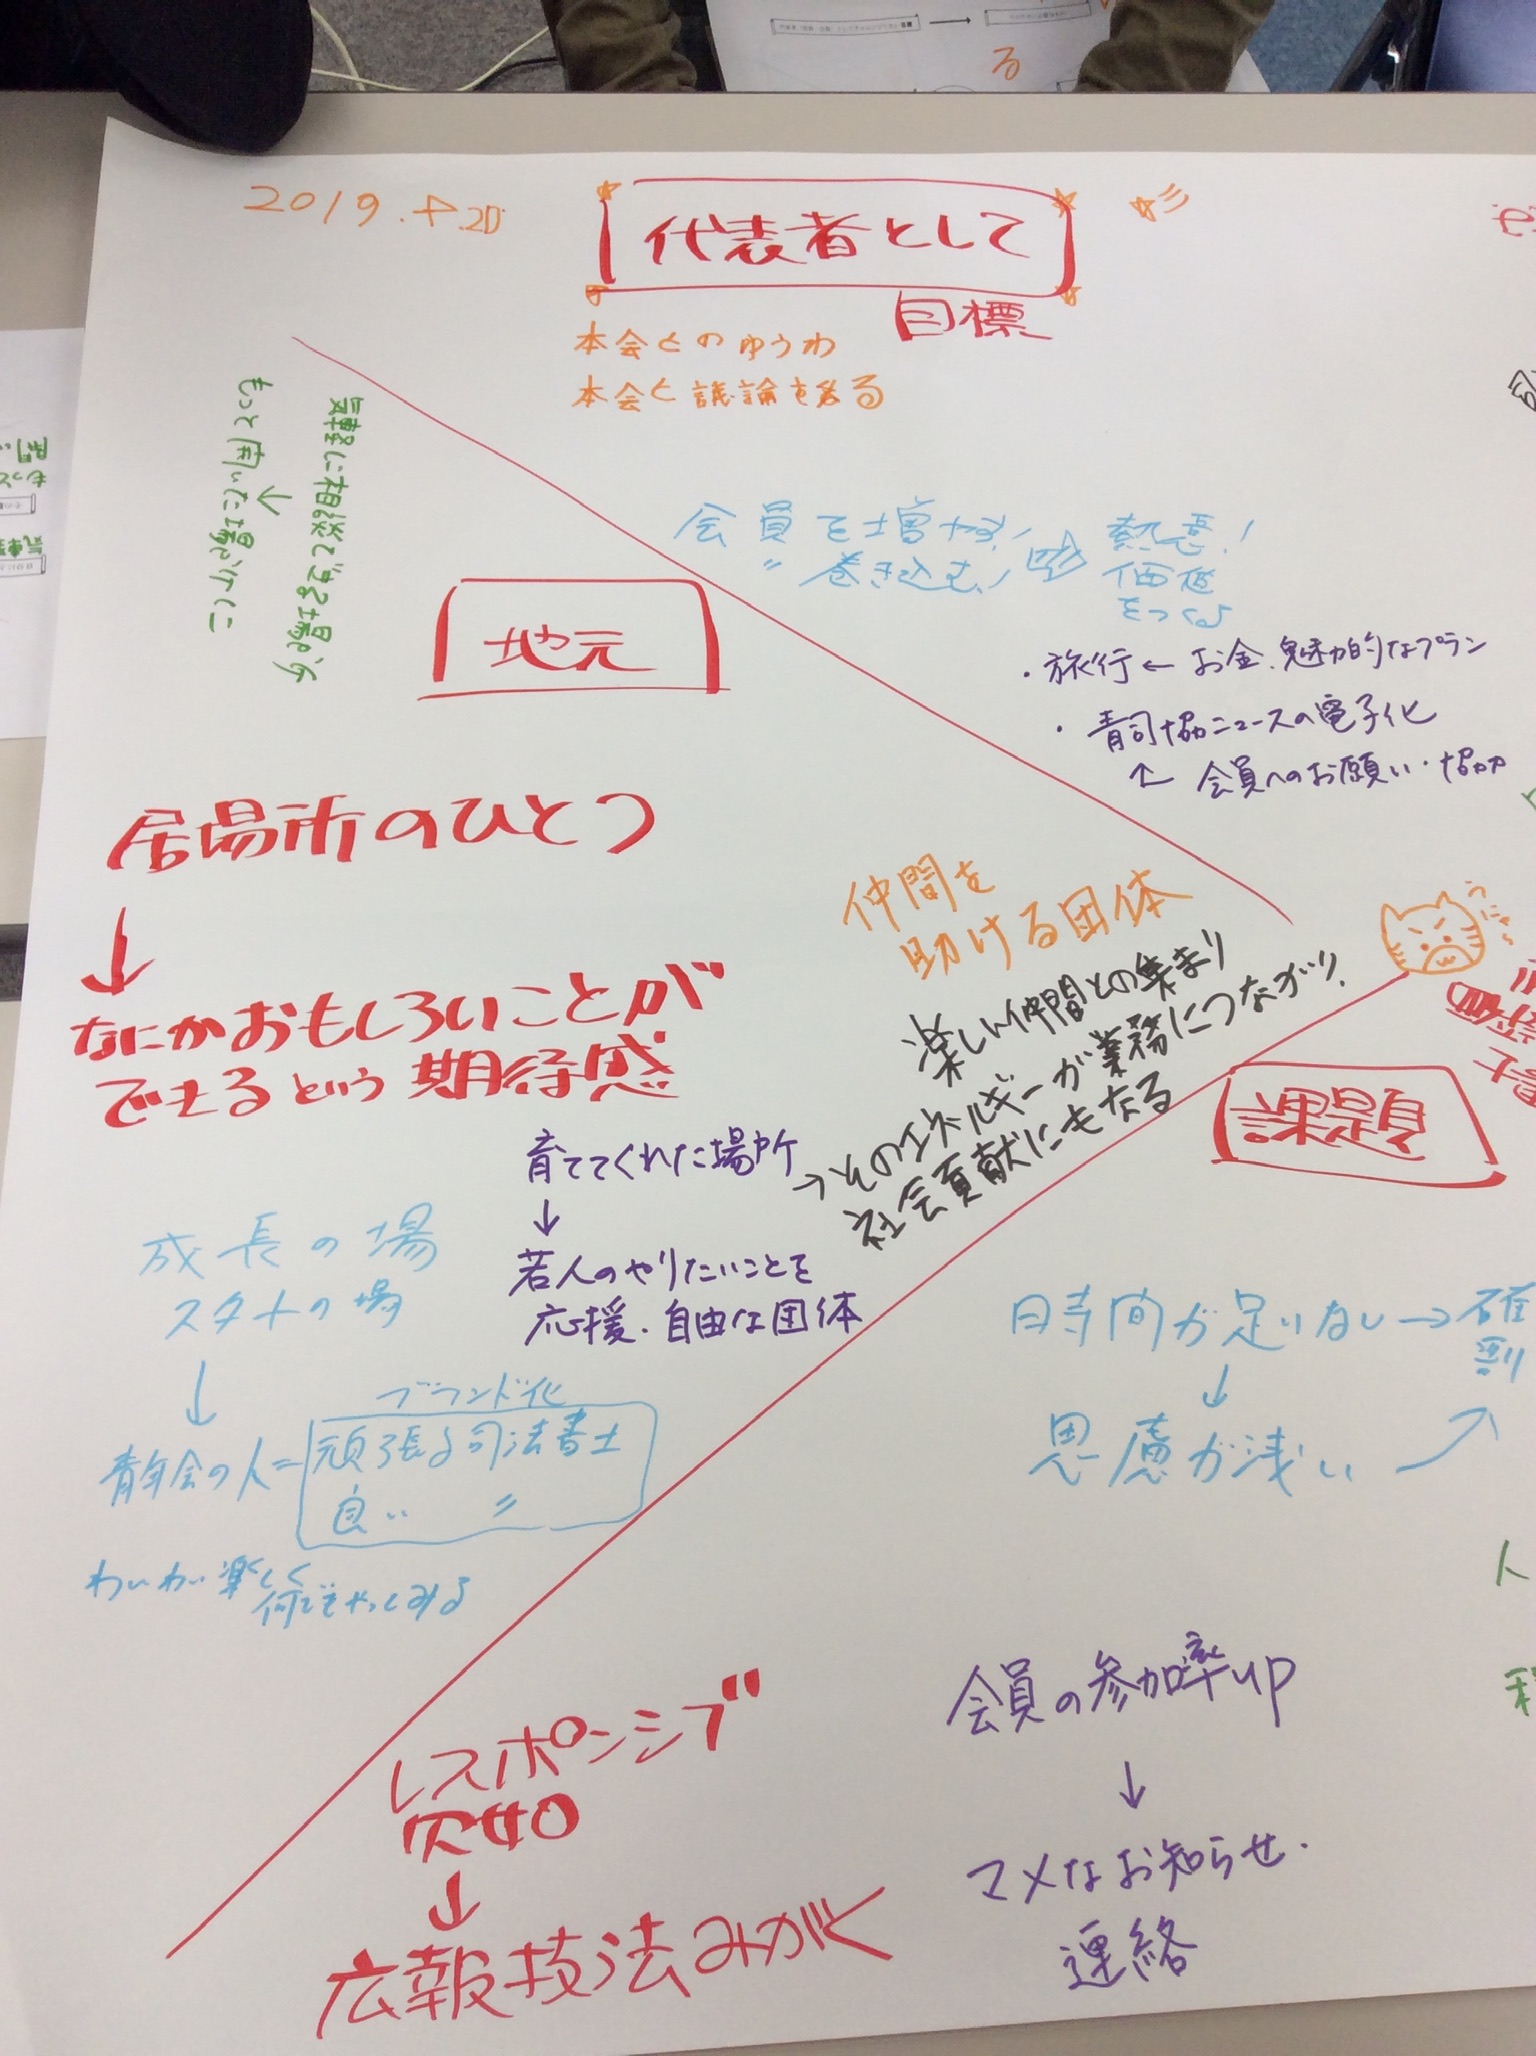 る
2019.4.20
代表者として
目標
本会とのゆうわ
本会と議論を
会員を増やす!
〃 巻き込む!
熱意!
価値
をつくる
・旅行 ← お金、魅力的なプラン
・青司協ニュースの電子化
↑ 会員へのお願い・協力
気軽に相談できる場所
↓
もっと開いた場所に
地元
居場所のひとつ
↓
なにかおもしろいことが
できるという期待感
仲間を
助ける団体
楽しい仲間との集まり
→そのエネルギーが業務につながり、
社会貢献にもなる
育ててくれた場所
↓
若人のやりたいことを
応援、自由な団体
成長の場
スタートの場
↓
ブランド化
青年会の人=頑張る司法書士
良い 〃
わいわい楽しく
何でもやってみる
課題
時間が足りない→確
↓
思慮が浅い
レスポンシブ
欠如
↓
広報技法みがく
会員の参加率up
↓
マメなお知らせ・
連絡